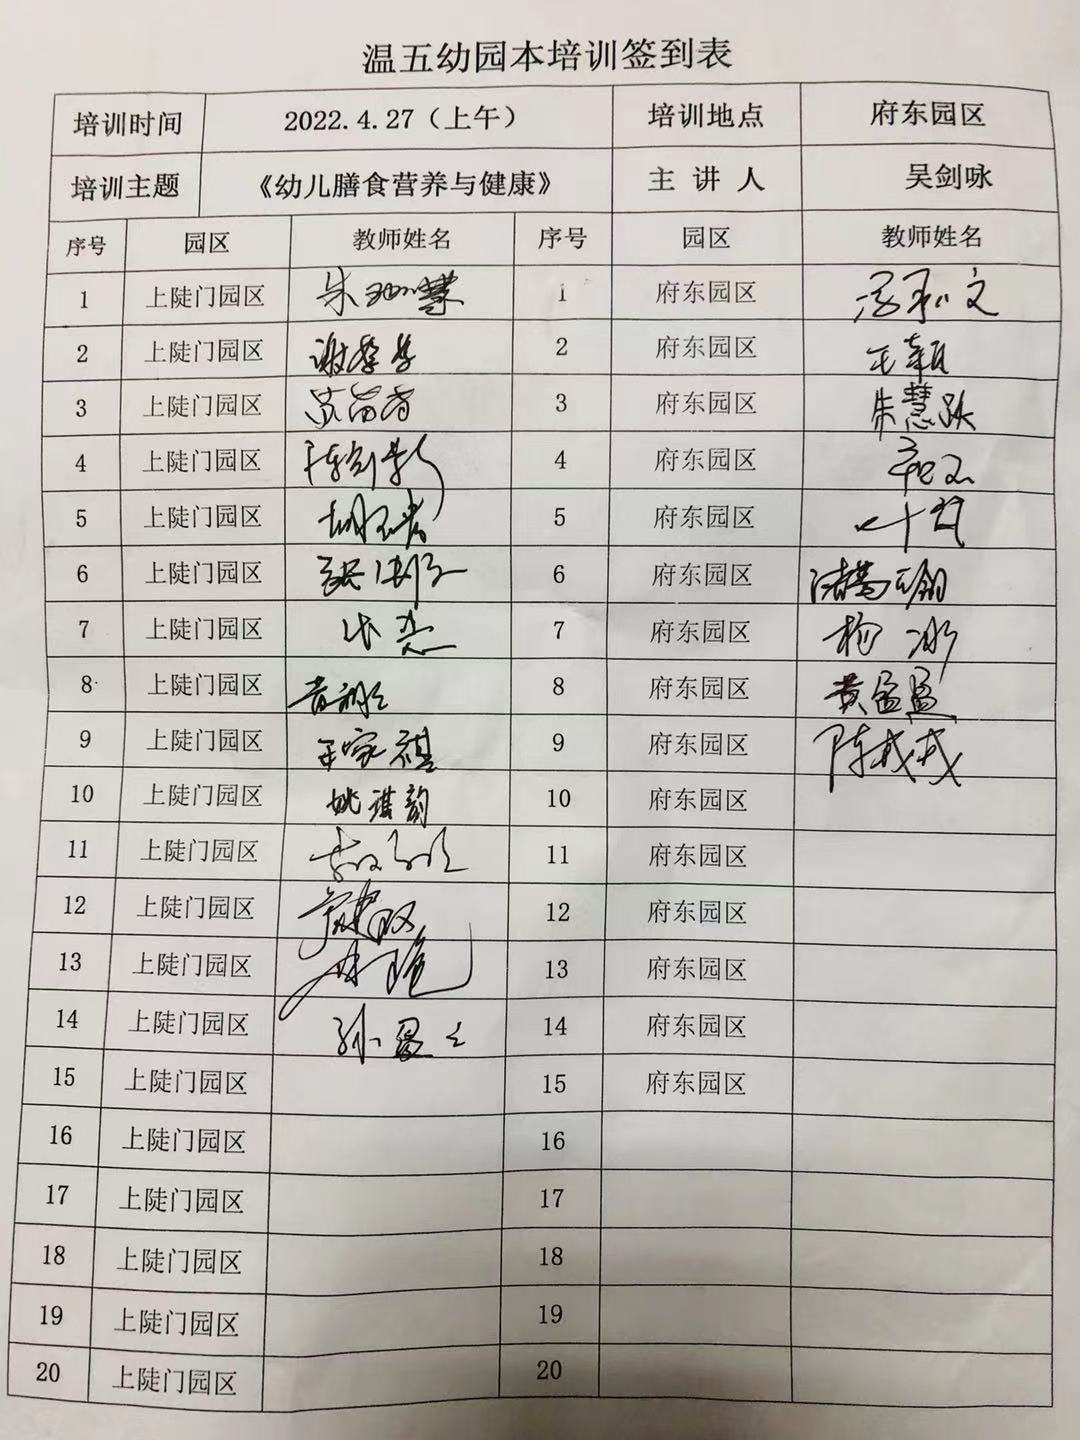 温五幼园本培训签到表
培训时间 2022.4.27（上午） 培训地点 府东园区
培训主题 《幼儿膳食营养与健康》 主 讲 人 吴剑咏
序号 园区 教师姓名 序号 园区 教师姓名
1 上陡门园区 1 府东园区
2 上陡门园区 2 府东园区 王颖
3 上陡门园区 3 府东园区 朱慧
4 上陡门园区 陈剑影 4 府东园区
5 上陡门园区 5 府东园区 叶茜
6 上陡门园区 6 府东园区 诸葛
7 上陡门园区 7 府东园区 杨冰
8 上陡门园区 8 府东园区 黄盈盈
9 上陡门园区 王家祺 9 府东园区 陈戎戎
10 上陡门园区 姚琪韵 10 府东园区
11 上陡门园区 11 府东园区
12 上陡门园区 12 府东园区
13 上陡门园区 13 府东园区
14 上陡门园区 孙 14 府东园区
15 上陡门园区 15 府东园区
16 上陡门园区 16
17 上陡门园区 17
18 上陡门园区 18
19 上陡门园区 19
20 上陡门园区 20